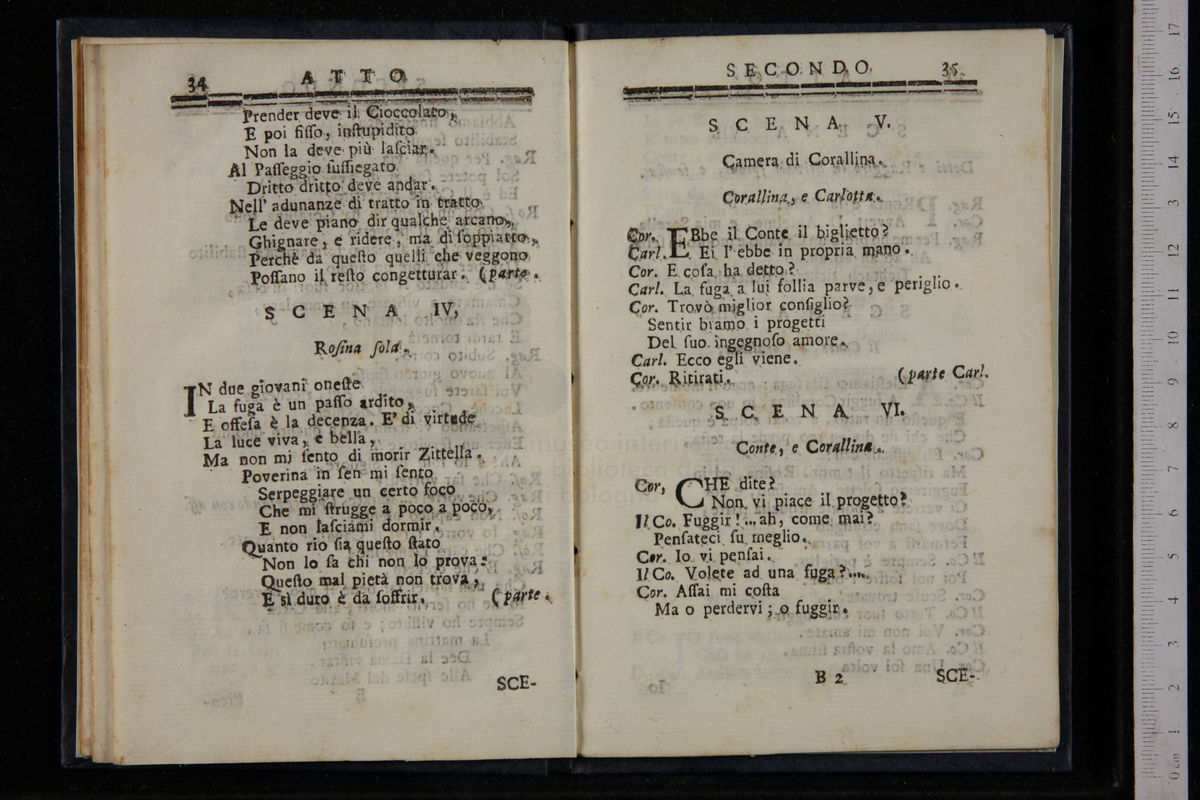 34 ATTO
Prender deve il Cioccolato,
E poi fisso, instupidito
Non la deve più lasciar.
Al Passeggio sussiegato
Dritto dritto deve andar.
Nell' adunanze di tratto in tratto
Le deve piano dir qualche arcano,
Ghignare, e ridere, ma di soppiatto,
Perchè da questo quelli che veggono
Possano il resto congetturar. (parte.
SCENA IV,
Rosina sola.
IN due giovani oneste
La fuga è un passo ardito,
E offesa è la decenza. E' di virtude
La luce viva, e bella,
Ma non mi sento di morir Zittella.
Poverina in sen mi sento
Serpeggiare un certo foco
Che mi strugge a poco a poco,
E non lasciami dormir.
Quanto rio sia questo stato
Non lo sa chi non lo prova:
Questo mal pietà non trova,
E sì duro è da soffrir. (parte.
SCE-
SECONDO 35
SCENA V.
Camera di Corallina.
Corallina, e Carlotta.
Cor. EBbe il Conte il biglietto?
Carl. Ei l'ebbe in propria mano.
Cor. E cosa ha detto?
Carl. La fuga a lui follia parve, e periglio.
Cor. Trovò miglior consiglio?
Sentir bramo i progetti
Del suo ingegnoso amore.
Carl. Ecco egli viene.
Cor. Ritirati. (parte Carl.
SCENA VI.
Conte, e Corallina.
Cor, CHE dite?
Non vi piace il progetto?
Il Co. Fuggir!... ah, come mai?
Pensateci su meglio.
Cor. Io vi pensai.
Il Co. Volete ad una fuga?....
Cor. Assai mi costa
Ma o perdervi; o fuggir.
B 2 SCE-